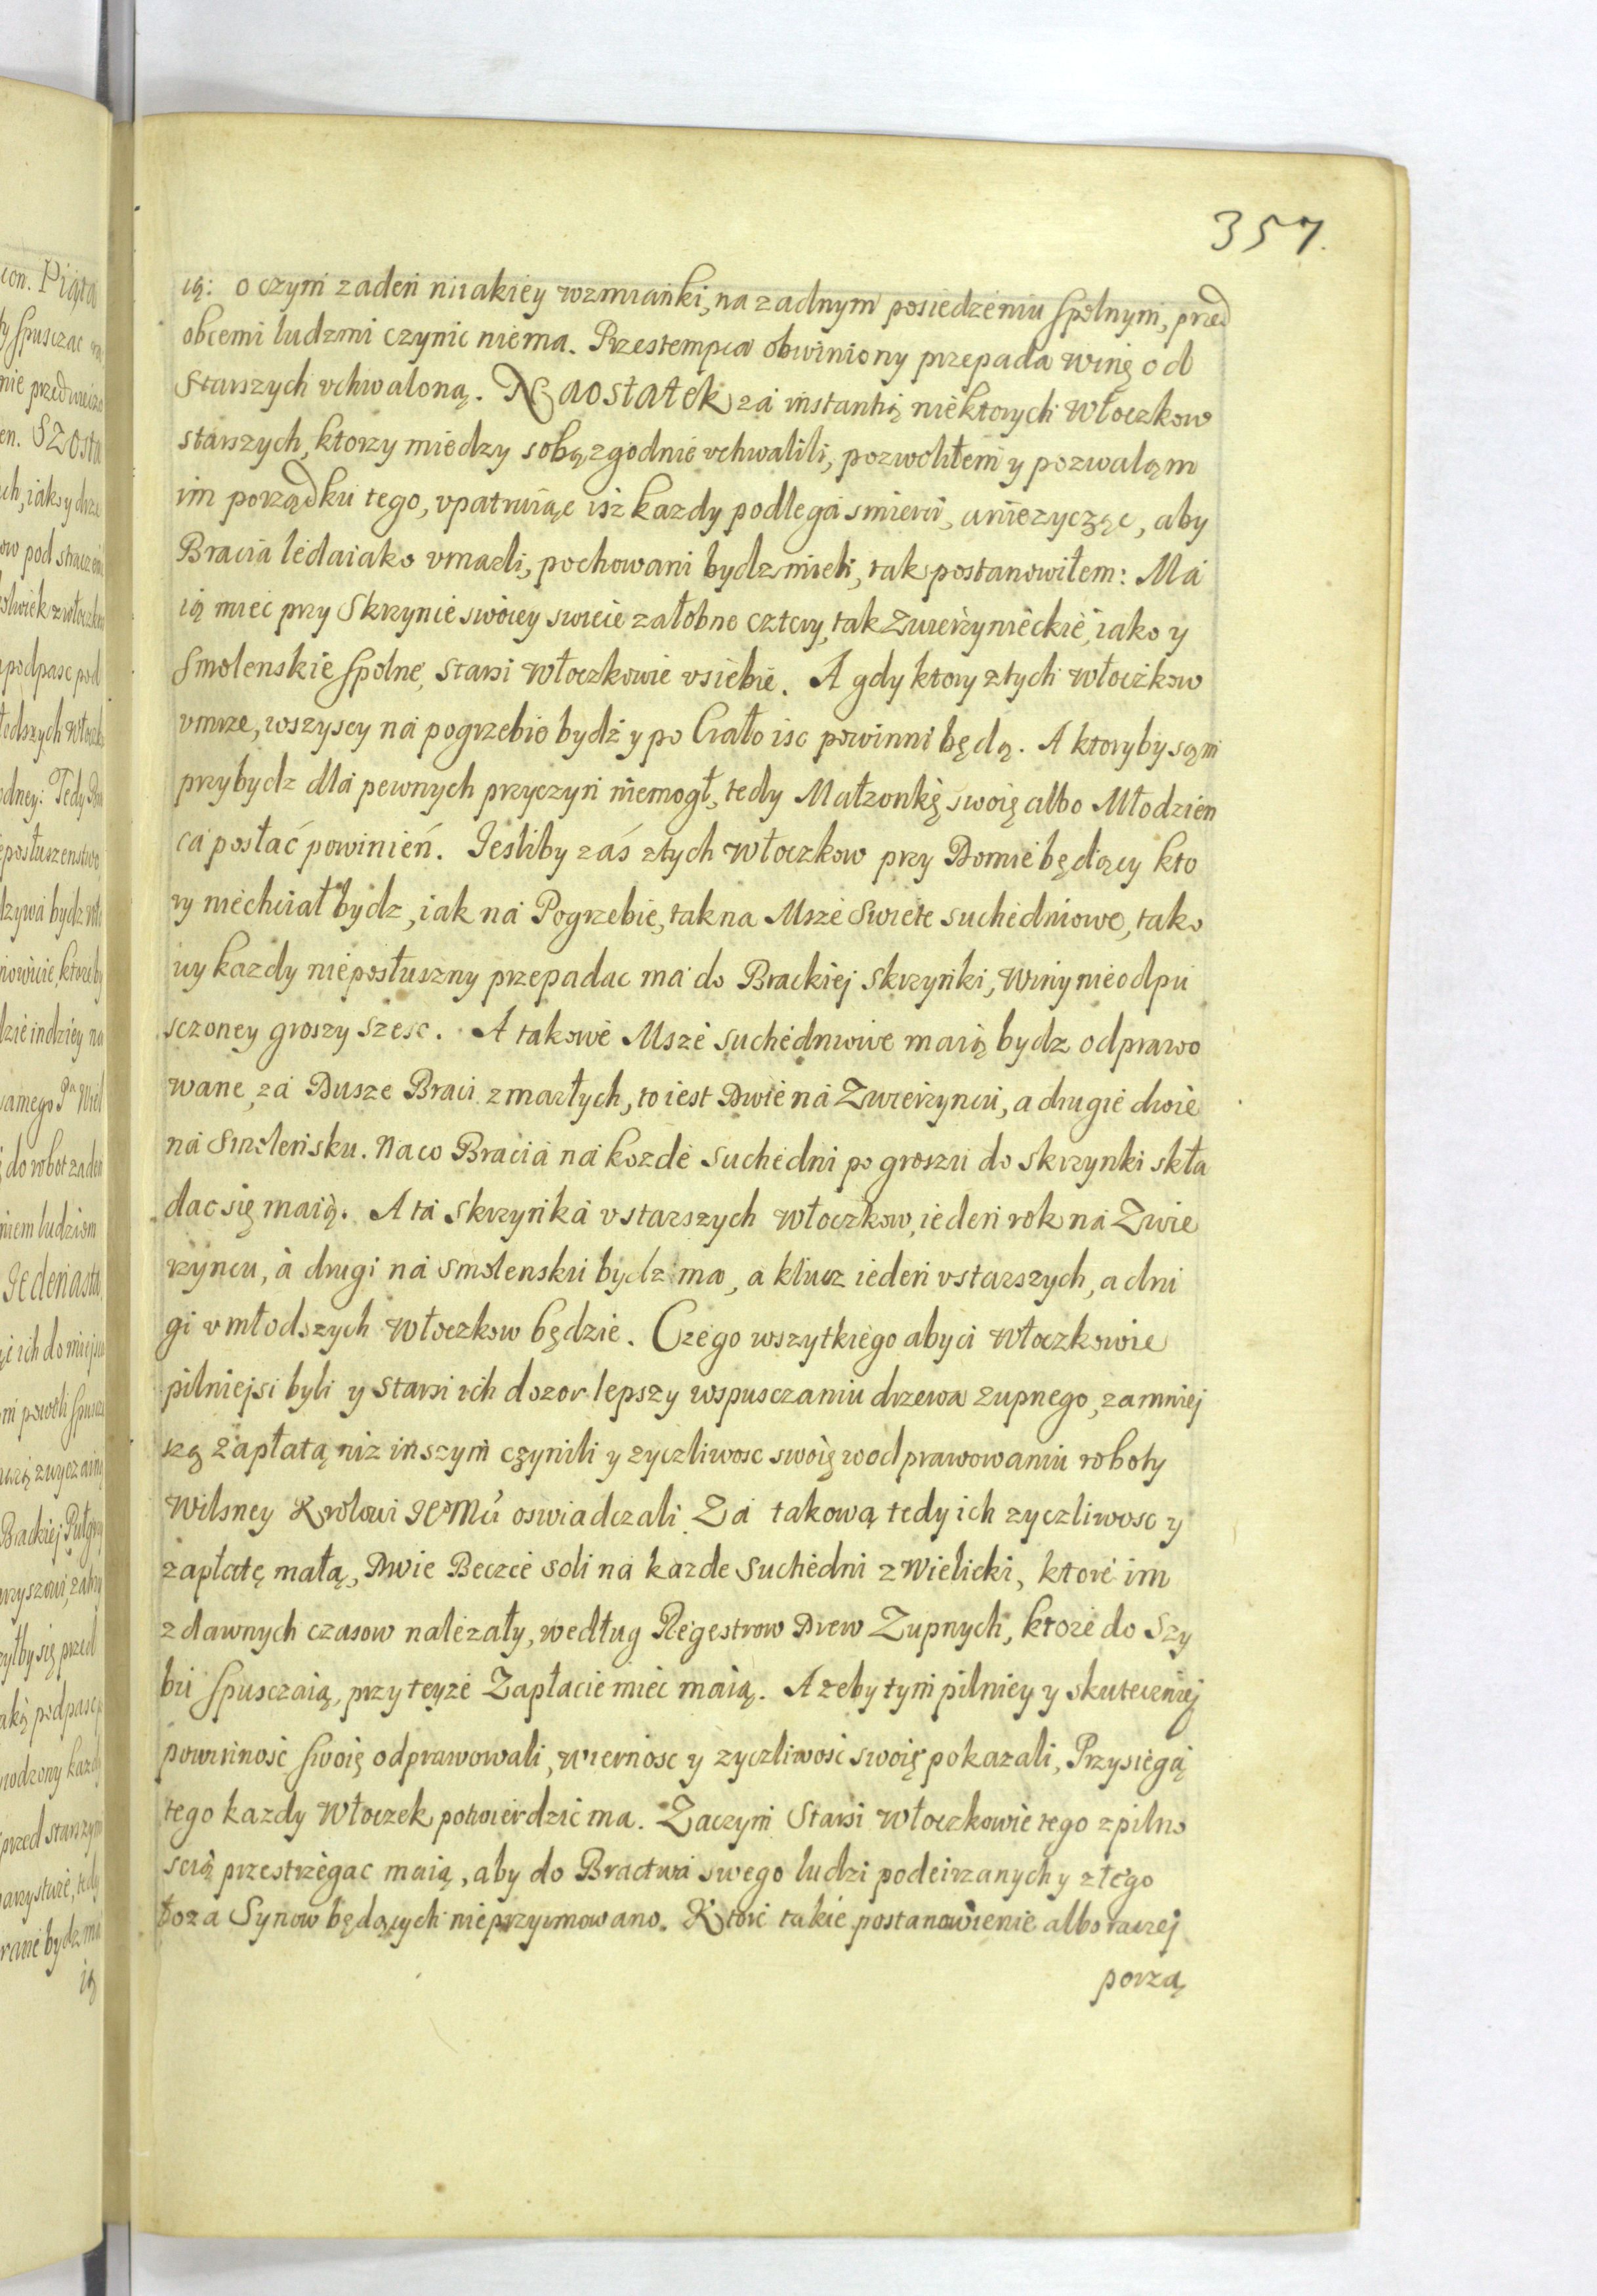 357.
ią: o czym zaden niiakiey wzmianki, na zadnym posiedzeniu spolnym, przed
obcemi ludzmi czynic niema. Przestempca obwiniony przepada winę od
Starszych vchwaloną. Naostatek za instantią niektorych Włoczkow
starszych, ktorzy miedzy sobą zgodnie vchwalili, pozwoliłem y pozwalam
im porządku tego, vpatruiąc isz kazdy podlega smierci, a niezycząc, aby
Bracia ledaiako vmarli, pochowani bydz mieli, tak postanowiłem: Ma
ią miec przy Skrzynie swoiey swiece załobne cztery, tak Zwierzynieckie, iako y
Smolenskie spolne, starsi Włoczkowie v siebie. A gdy ktory z tych Włoczkow
vmrze, wszyscy na pogrzebie bydz y po Ciało isc powinni będą. A ktoryby sam
przybydz dla pewnych przyczyn niemogł, tedy Małzonkę swoię albo Młodzien
ca posłać powinien. Iesliby zaś z tych Włoczkow przy Domie będący kto
ry niechciał bydz, iak na Pogrzebie, tak na Msze Swiete suchedniowe, tako
wy kazdy nieposłuszny przepadac ma do Brackiej skrzynki, winy nieodpu
sczoney groszy szesc. A takowe Msze suchedniowe maią bydz odprawo
wane, za Dusze Braci zmarłych, to iest Dwie na Zwierzyncu, a drugie dwie
na Smoleńsku. Na co Bracia na kozde suchedni po groszu do skrzynki skła
dac się maią. A ta skrzynka v starszych Włoczkow, ieden rok na Zwie
rzyncu, a drugi na Smolensku bydz ma, a klucz ieden v starszych, a dru
gi v młodszych Włoczkow będzie. Czego wszytkiego aby ci Włoczkowie
pilniejsi byli y starsi ich dozor lepszy w spusczaniu drzewa zupnego, za mniej
szą zapłatą niz inszym czynili y zyczliwosc swoię w odprawowaniu roboty
Wilsney Krolowi Ie°Mci oswiadczali. Za takową tedy ich zyczliwosc y
zapłatę małą, Dwie Beczce soli na kazde Suchedni z Wielicki, ktore im
z dawnych czasow nalezały, według Regestrow Drew Zupnych, ktore do Szy
bu spusczaią, przy teyze Zapłacie miec maią. A zeby tym pilniey y skuteczniej
powinnosc swoię odprawowali, wiernosc y zyczliwosc swoię pokazali, Przysięgą
tego kazdy Włoczek potwierdzic ma. Zaczym Starsi Włoczkowie tego z pilno
scią przestrzegac maią, aby do Bractwa swego ludzi podeirzanych y złego
łoza Synow będących nieprzyimowano. Ktore takie postanowienie albo raczej
porzą